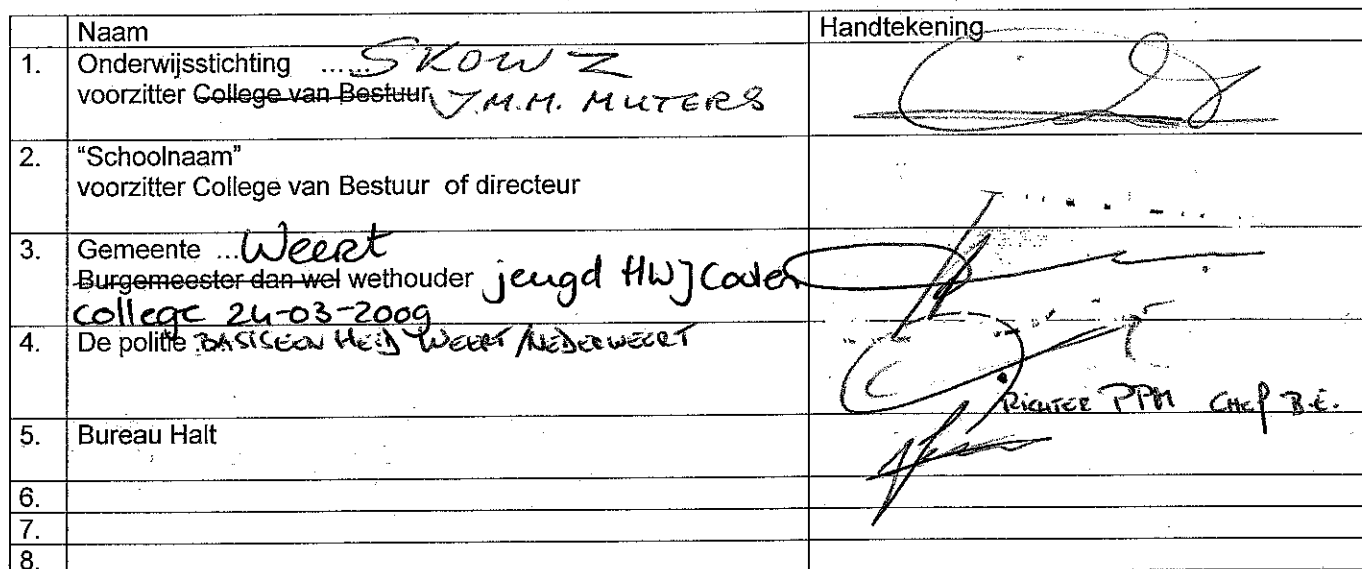 Naam Handtekening
1. Onderwijsstichting ...... SKOWZ
voorzitter College van Bestuur J.M.M. MUTERS
2. "Schoolnaam"
voorzitter College van Bestuur of directeur
3. Gemeente ... Weert
Burgemeester dan wel wethouder jeugd HWJ
college 24-03-2009
4. De politie BASISEENHEID WEERT/NEDERWEERT
RICHTER PPM CHEF B.E.
5. Bureau Halt
6.
7.
8.